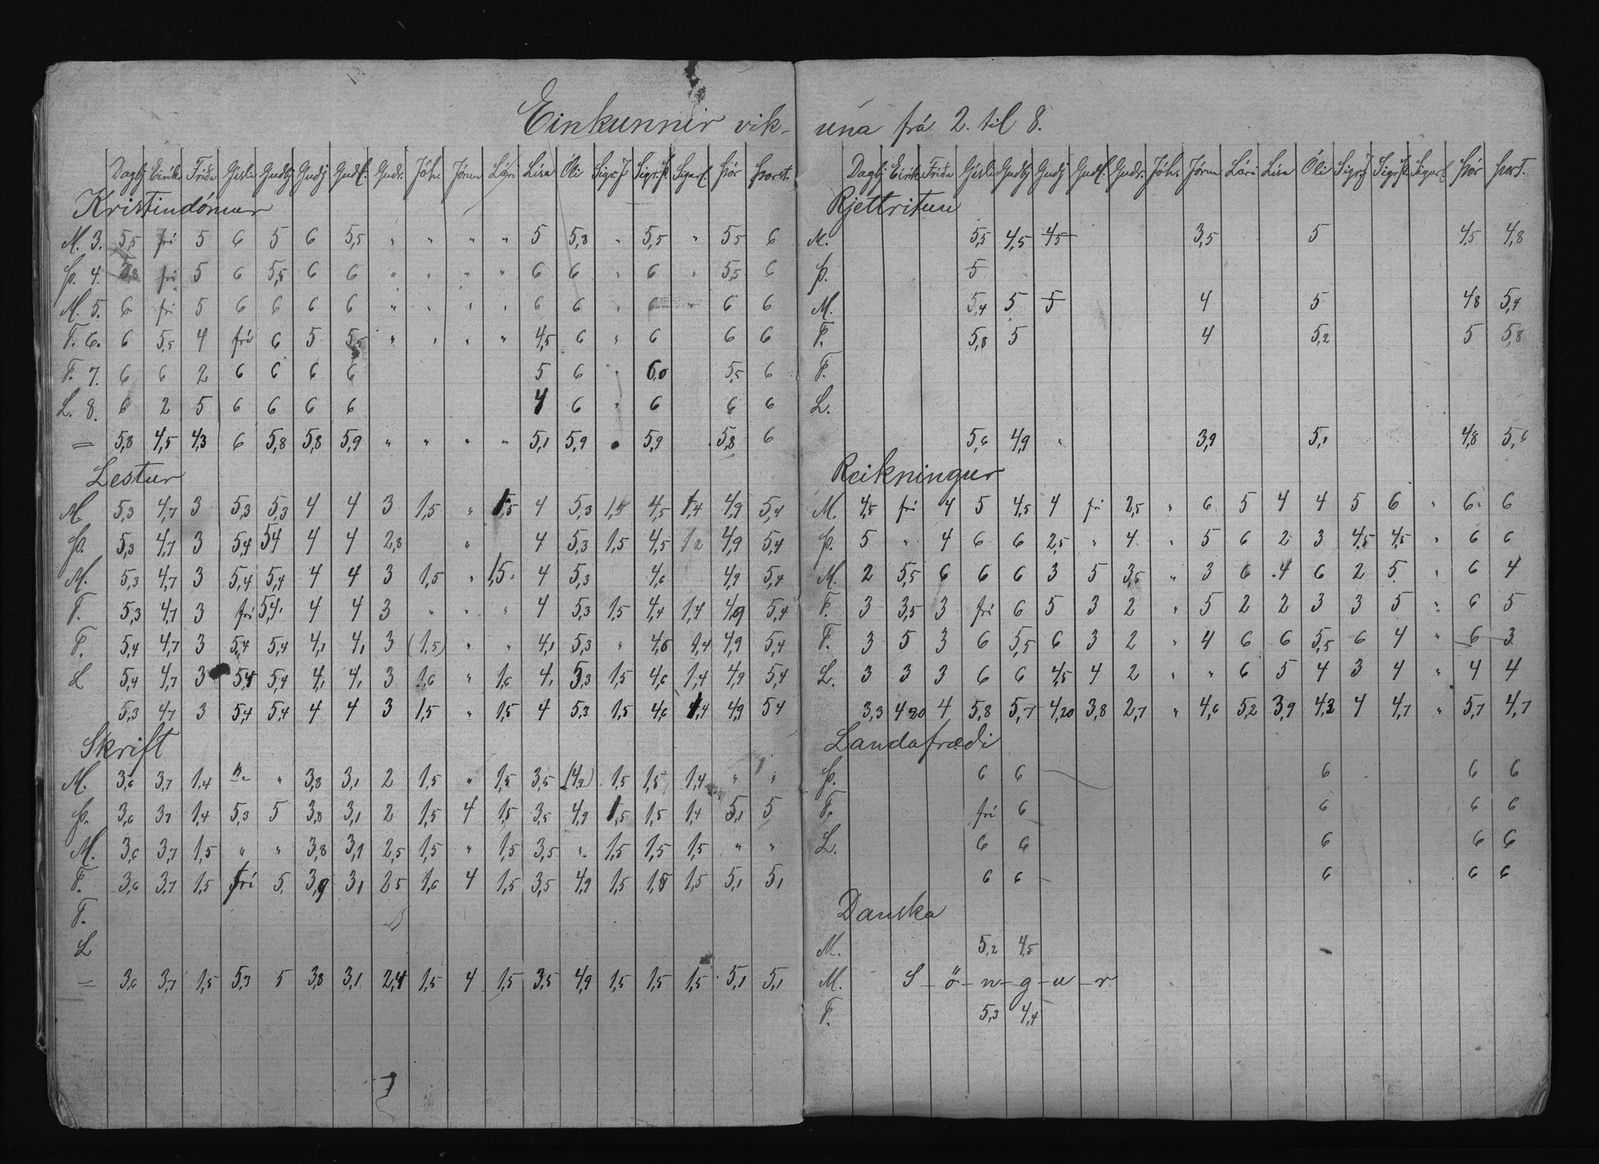 Einkunnir vik-
Dagbj Eirík Fríða Gísli Gudbj Gudj Gudl. Gudr. Jóhn Jórun Lári Lísa Óli Sigr.J Sigr.St Sigurl. Þór Þorst.
Kristindómur
M. 3. 5,5 frí 5 6 5 6 5,5 „ „ „ „ 5 5,8 „ 5,5 „ 5,5 6
Þ. 4. frí 5 6 5,5 6 6 „ „ „ „ 6 6 „ 6 „ 5,5 6
M. 5. 6 frí 5 6 6 6 6 „ „ „ „ 6 6 „ 6 6 6
F. 6. 6 5,5 4 frí 6 5 5,5 „ „ „ „ 4,5 6 „ 6 6 6
F. 7. 6 6 2 6 6 6 6 5 6 „ 6,0 5,5 6
L. 8. 6 2 5 6 6 6 6 4 6 „ 6 6 6
= 5,8 4,5 4,3 6 5,8 5,8 5,9 „ „ „ „ 5,1 5,9 „ 5,9 5,8 6
Lestur
M 5,3 4,7 3 5,3 5,3 4 4 3 1,5 „ 1,5 4 5,3 1,5 4,5 1,4 4,9 5,4
Þ. 5,3 4,7 3 5,4 5,4 4 4 2,8 „ 4 5,3 1,5 4,5 4,9 5,4
M. 5,3 4,7 3 5,4 5,4 4 4 3 1,5 „ 1,5 4 5,3 4,6 4,9 5,4
F. 5,3 4,7 3 frí 5,4 4 4 3 „ „ „ 4 5,3 1,5 4,4 1,4 4,9 5,4
F. 5,4 4,7 3 5,4 5,4 4,1 4,1 3 (1,5) „ „ 4,1 5,3 „ 4,6 1,4 4,9 5,4
L 5,4 4,7 3 5,4 5,4 4,1 4,1 3 1,6 „ 1,6 4,1 5,3 1,5 4,6 1,4 4,9 5,4
5,3 4,7 3 5,4 5,4 4 4 3 1,5 „ 1,5 4 5,3 1,5 4,6 1,4 4,9 5,4
Skrift
M. 3,6 3,7 1,4 „ „ 3,8 3,1 2 1,5 „ 1,5 3,5 (4,9) 1,5 1,5 1,4 „ „
Þ. 3,6 3,7 1,4 5,3 5 3,8 3,1 2 1,5 4 1,5 3,5 4,9 1,5 1,5 1,4 5,1 5
M. 3,6 3,7 1,5 „ „ 3,8 3,9 2,5 1,5 „ 1,5 3,5 „ 1,5 1,5 1,5 „ „
F. 3,6 3,7 1,5 frí 5 3,9 3,1 2,5 1,6 4 1,5 3,5 4,9 1,5 1,5 1,5 5,1 5,1
F.
L
= 3,6 3,7 1,5 5,3 5 3,8 3,1 2,4 1,5 4 1,5 3,5 4,9 1,5 1,5 1,5 5,1 5,1
una frá 2. til 8.
Dagbj Eirík Fríða Gísli Gudbj Gudj Gudl. Gudr. Jóhn Jórun Lári Lísa Óli Sigr.J Sigr.St Sigurl. Þór Þorst.
Rjettritun
M. 5,5 4,5 4,5 3,5 5 4,5 4,8
Þ. 5
M. 5,4 5 5 4 5 4,8 5,4
F. 5,8 5 4 5,2 5 5,8
F.
L.
5,6 4,9 „ 3,9 5,1 4,8 5,6
Reikningur
M. 4,5 frí 4 5 4,5 4 frí 2,5 „ 6 5 4 4 5 6 „ 6 6
Þ. 5 „ 4 6 6 2,5 „ 4 „ 5 6 2 3 4,5 4,5 „ 6 6
M. 2 5,5 6 6 6 3 5 3,5 „ 3 6 4 6 2 5 „ 6 4
F. 3 3,5 3 frí 6 5 3 2 „ 5 2 2 3 3 5 „ 6 5
F. 3 5 3 6 5,5 6 3 2 „ 4 6 6 5,5 6 4 „ 6 3
L. 3 3 3 6 6 4,5 4 2 „ „ 6 5 4 3 4 „ 4 4
3,3 4,20 4 5,8 5,7 4,20 3,8 2,7 „ 4,6 5,2 3,9 4,2 4 4,7 „ 5,7 4,7
Landafrædi
Þ. 6 6 6 6 6
F. frí 6 6 6 6
L. 6 6 6 6 6
6 6 6 6 6
Danska
M. 5,2 4,5
M. S-ö-n-g-u-r
F. 5,3 4,4